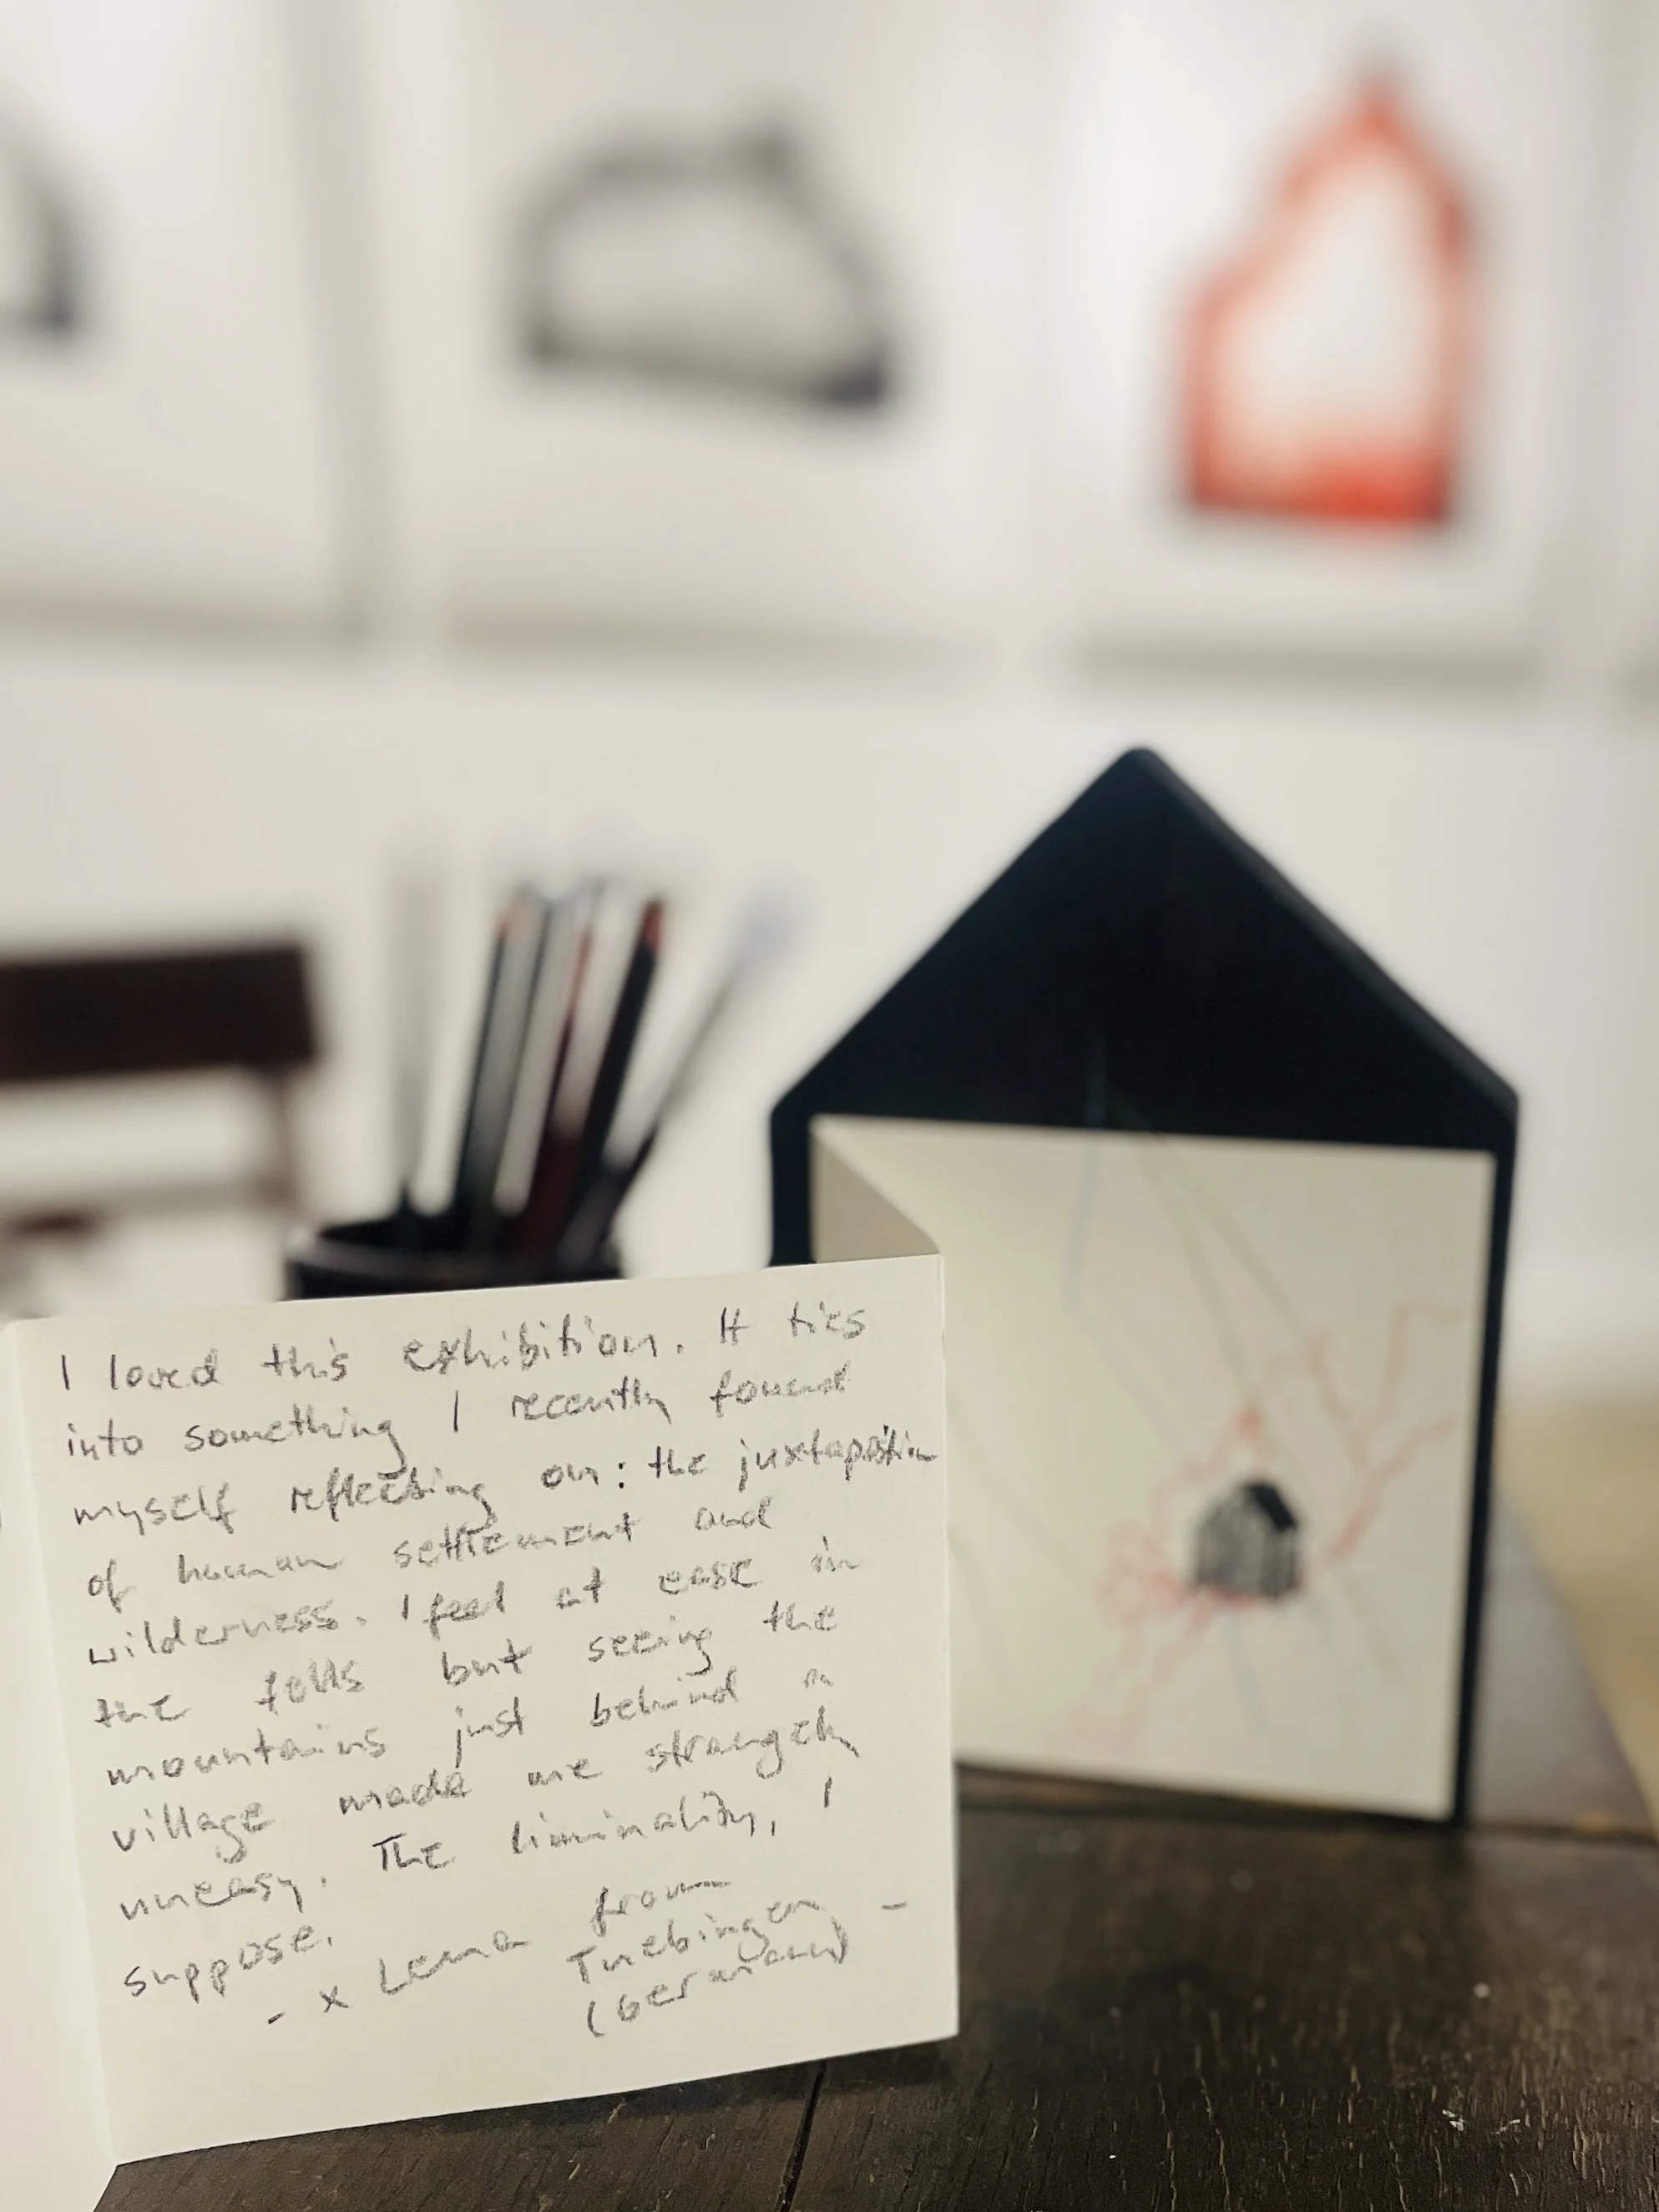 I loved this exhibition. It ties
into something I recently found
myself reflecting on: the juxtaposition
of human settlement and
wilderness. I feel at ease in
the fells but seeing the
mountains just behind a
village made me strangely
uneasy. The liminality, I
suppose.
- x Lena from
Tuebingen
(Germany) -